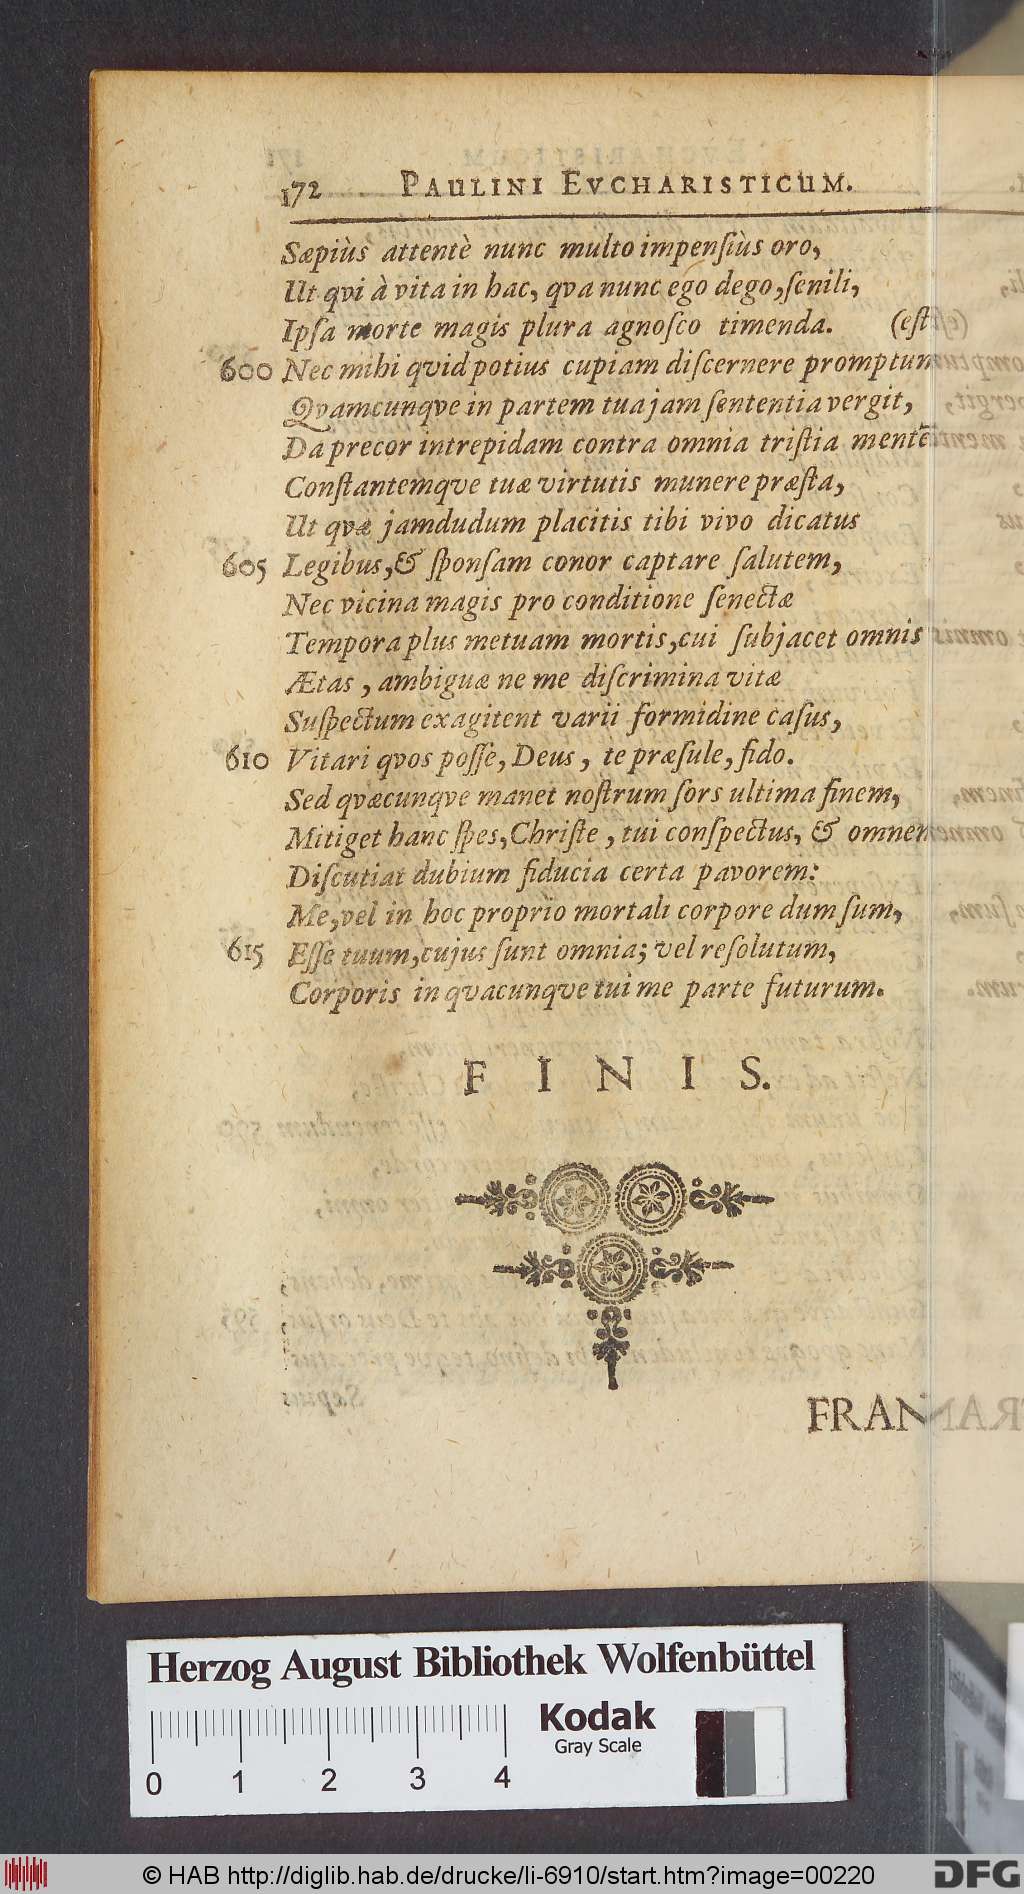 172 PAULINI EVCHARISTICUM.
Sæpiùs attentè nunc multo impenſiùs oro,
Ut qvi à vita in hac, qva nunc ego dego, ſenili,
Ipſa morte magis plura agnoſco timenda. (eſt
600 Nec mihi qvid potius cupiam diſcernere promptum
Qvamcunqve in partem tua jam ſententia vergit,
Da precor intrepidam contra omnia triſtia mentē
Conſtantemqve tuæ virtutis munere præſta,
Ut qvæ jamdudum placitis tibi vivo dicatus
605 Legibus, & ſponſam conor captare ſalutem,
Nec vicina magis pro conditione ſenectæ
Tempora plus metuam mortis, cui ſubjacet omnis
Ætas, ambiguæ ne me diſcrimina vitæ
Suſpectum exagitent varii formidine caſus,
610 Vitari qvos poſſe, Deus, te præſule, fido.
Sed qvæcunqve manet noſtrum ſors ultima finem,
Mitiget hanc ſpes, Chriſte, tui conſpectus, & omnem
Diſcutiat dubium fiducia certa pavorem:
Me, vel in hoc proprio mortali corpore dum ſum,
615 Eſſe tuum, cujus ſunt omnia; vel reſolutum,
Corporis in qvacunqve tui me parte futurum.
FINIS.
FRAN
Herzog August Bibliothek Wolfenbüttel
Kodak
Gray Scale
0 1 2 3 4
© HAB http://diglib.hab.de/drucke/li-6910/start.htm?image=00220
DFG